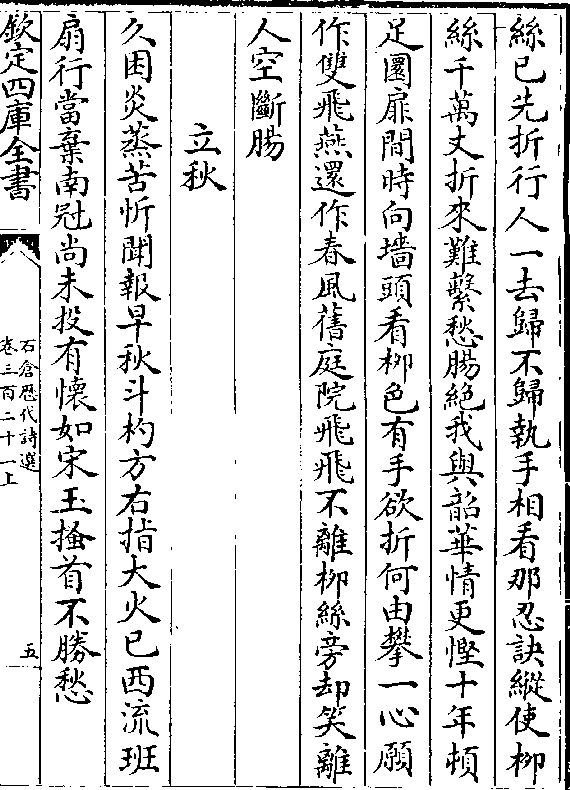 絲已先折行人一去歸不歸執手相看那忍訣縱使柳
絲千萬丈折來難繫愁腸絶我與韶華情更慳十年頓
足圜扉間時向墻頭看柳色有手欲折何由攀一心願
作雙飛燕還作春風舊庭院飛飛不離柳絲旁却笑離
人空斷腸
立秋
久困炎蒸苦忻聞報早秋斗杓方右指大火已西流班
扇行當棄南冠尚未投有懷如宋玉搔首不勝愁
欽定四庫全書
石倉歴代詩選
卷三百二十一上
五